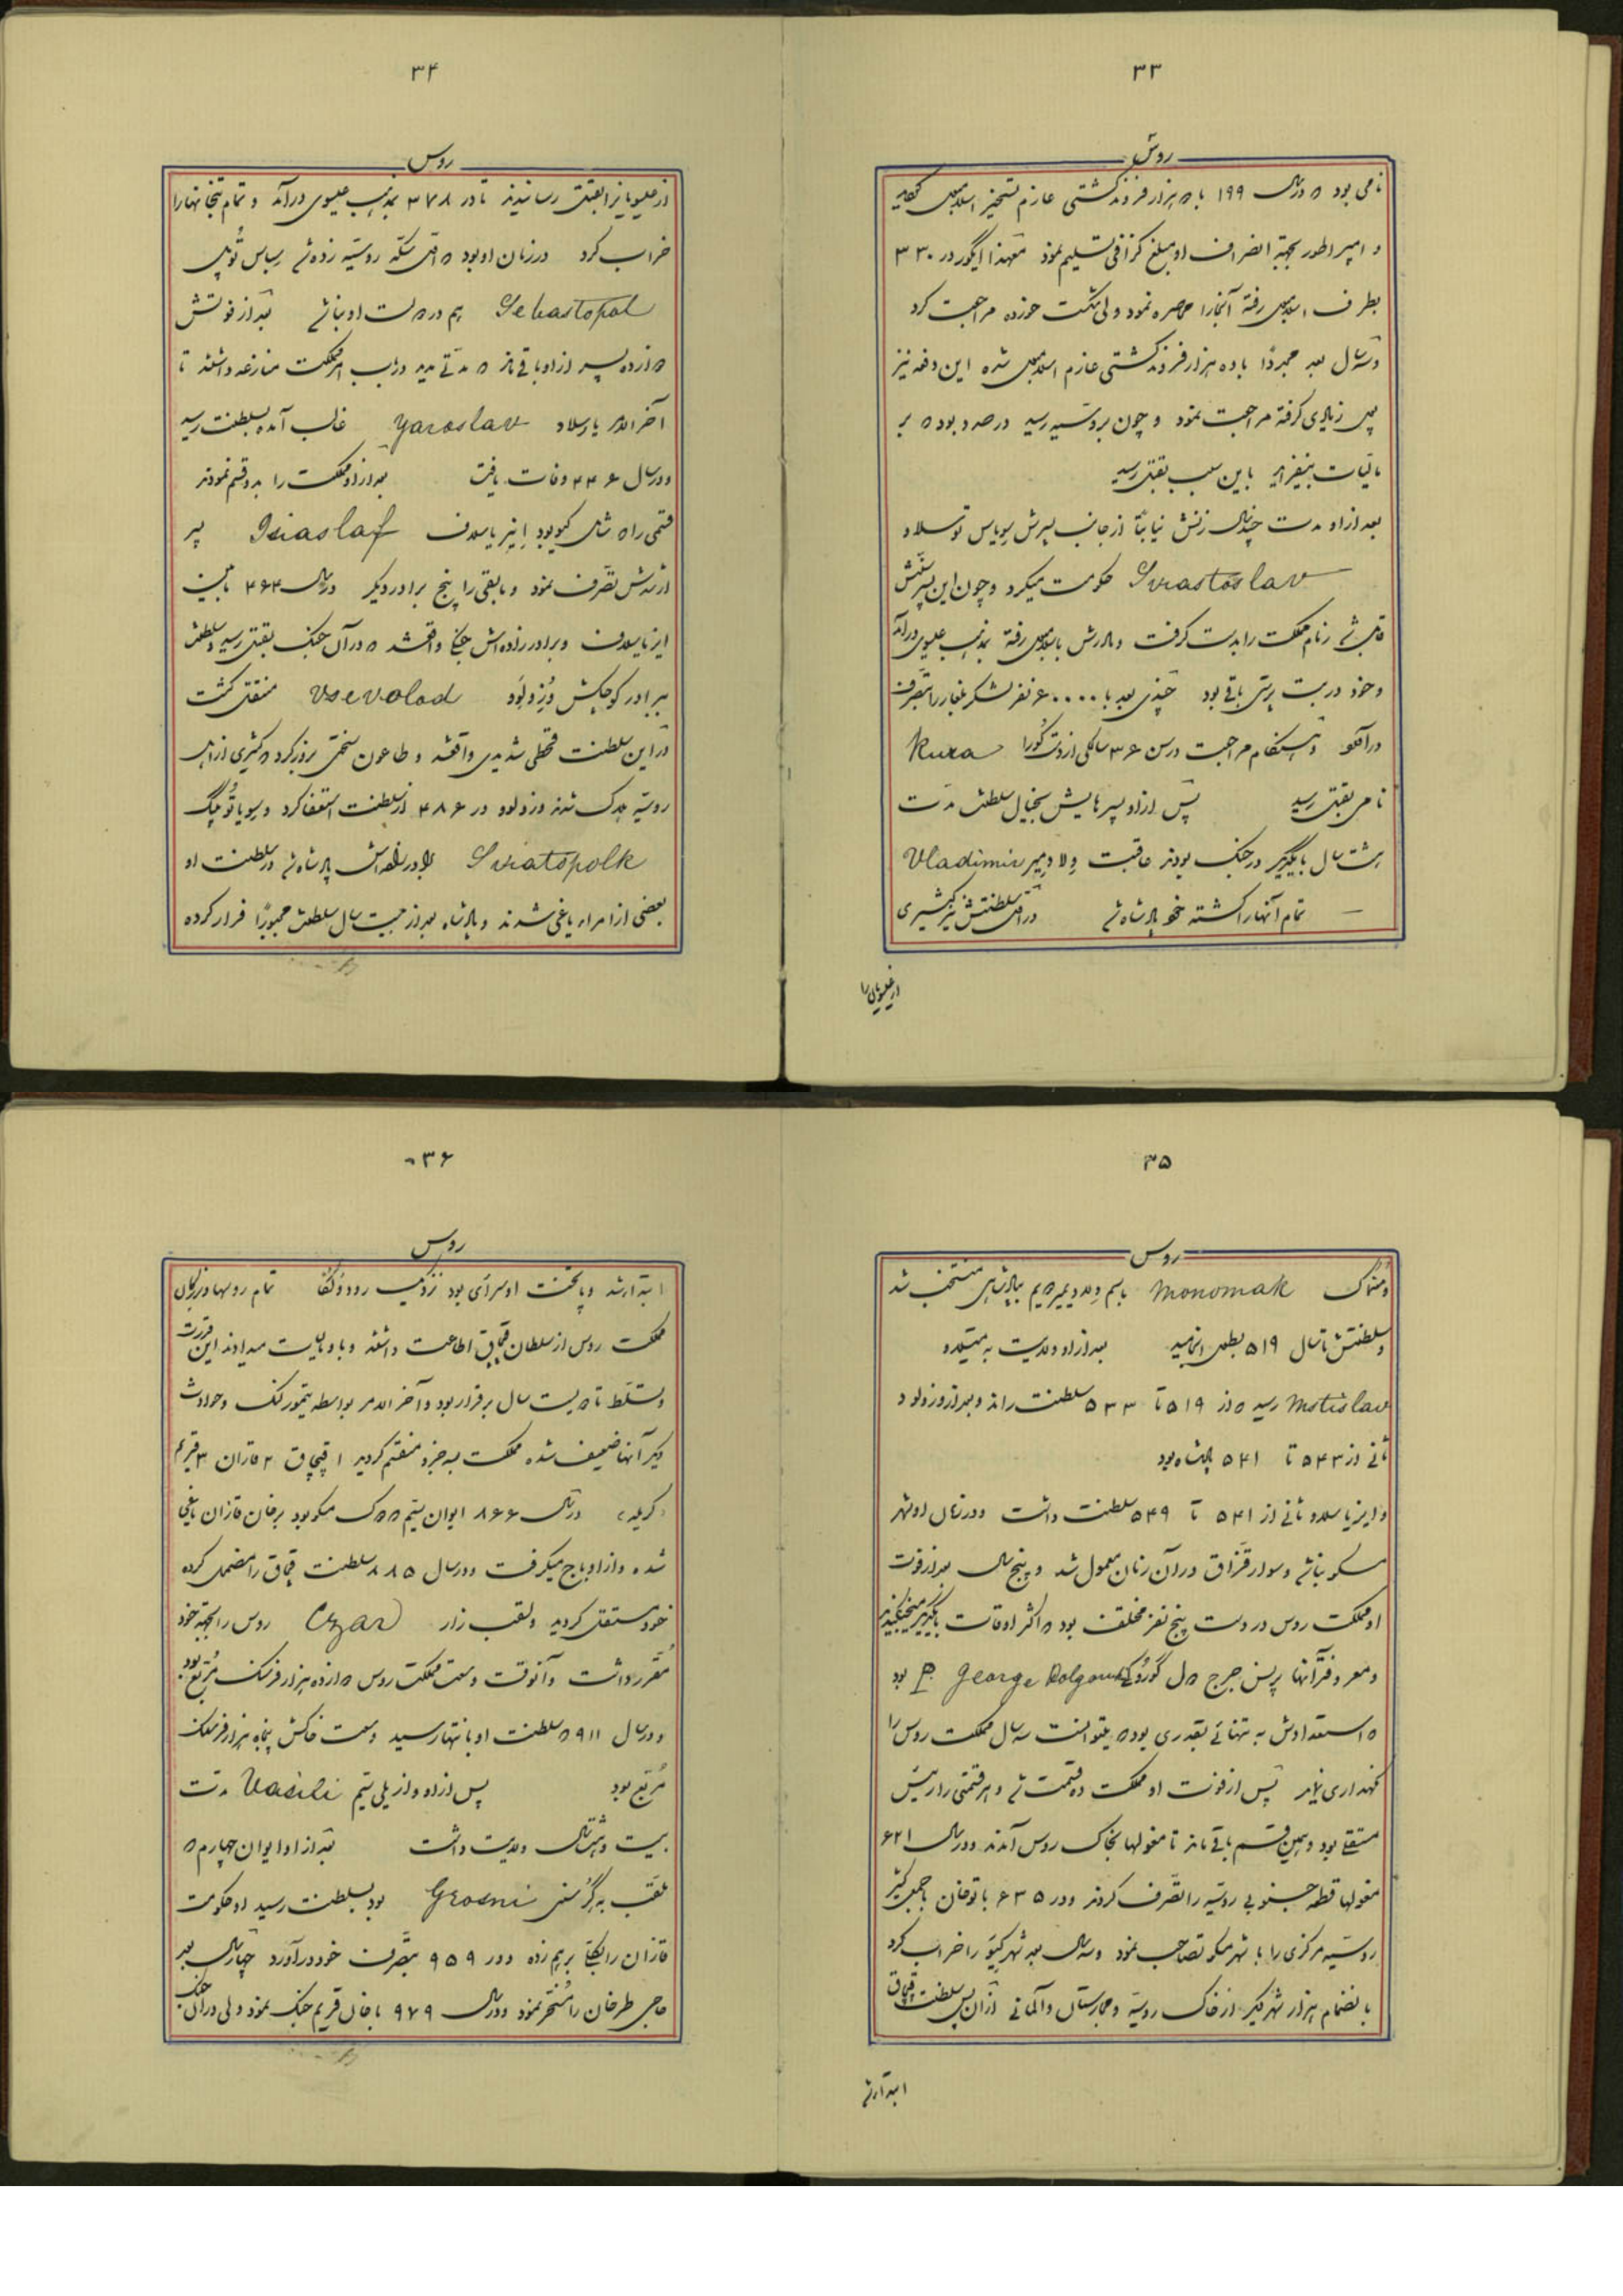 ۳۳
روس
نامی بود که در سال ۱۹۹ با ده هزار فروند کشتی عازم تسخیر اسلامبول گردید
و امپراطور بجهة انصراف او مبلغ گزافی تسلیم نمود معهذا ایگور در ۳۳۰
بطرف اسلامبول رفته آنجا را محاصره نمود ولی شکست خورده مراجعت کرد
در سال بعد مجدداً با ده هزار فروند کشتی عازم اسلامبول شده این دفعه نیز
پول زیادی گرفته مراجعت نمود و چون بروسیه رسید درصدد بود که بر
مالیات بیفزاید باین سبب بقتل رسید
بعد از او مدت چند سال زنش نیابتاً از جانب پسرش سویاس توسلاو
Sviastoslav حکومت میکرد و چون این پسر بسنّش
قابل شد زمام مملکت را بدست گرفت و مادرش باسلامبول رفته بمذهب عیسوی درآمد
و خود در بت پرستی باقی بود چندی بعد با ۶۰۰۰۰ نفر لشکر بلغار را بتصرف
درآورد و هنگام مراجعت در سن ۳۶ سالگی از دست کورا Kura
نامی بقتل رسید پس از او پسرهایش بخیال سلطنت مدت
هشت سال با یکدیگر در جنگ بودند عاقبت ولادیمیر Vladimir
تمام آنها را کشته خود پادشاه شد در اول سلطنتش نیز کثیری
از عیسویان را
۳۴
روس
از عیسویان را بقتل رسانیدند تا در ۳۷۸ بمذهب عیسوی درآمد و تمام بتخانها را
خراب کرد در زمان او بود که اول سکّه روسیه زده شد سباس توپل
Sebastopol هم در دولت او بنا شد بعد از فوتش
دوازده پسر از او باقی ماند که مدتی مدید در باب امر مملکت منازعه داشتند تا
آخر الامر یارسلاو Yaroslav غالب آمده بسلطنت رسید
و در سال ۴۴۶ وفات یافت بعد از او مملکت را بدو قسم نمودند
قسمی را که شامل کیو بود ایزیاسلاف Isiaslaf پسر
ارشدش تصرّف نمود و مابقی را پنج برادر دیگر در سال ۴۶۴ مابین
ایزیاسلاف و برادرزاده‌اش جنگی واقع شد که در آن جنگ بقتل رسید و سلطنت
ببرادر کوچکش وزولود Vsevolod منتقل گشت
در این سلطنت قحطی شدیدی واقع شد و طاعون سختی بروز کرد که کثیری از اهل
روسیّه هلاک شدند وزولود در ۴۸۶ از سلطنت استعفا کرد و سویاتوپلک
Sviatopolk برادرزاده‌اش پادشاه شد در سلطنت او
بعضی از امراء یاغی شدند و پادشاه بعد از بیست سال سلطنت مجبوراً فرار کرده
۳۵
روس
و مُنُماک Monomak باسم ولادیمیر دویم بپادشاهی منتخب شد
و سلطنتش تا سال ۵۱۹ بطول انجامید بعد از او ولایت به متیسلاو
Mstislav رسید که از ۵۱۹ تا ۵۳۳ سلطنت راند و بعد از او وزولود
ثانی از ۵۴۳ تا ۵۴۱ پادشاه بود
و ایزیاسلاو ثانی از ۵۴۱ تا ۵۴۹ سلطنت داشت و در زمان او شهر
مسکو بنا شد و سوار قزّاق در آن زمان معمول شد و پنج سال بعد از فوت
او مملکت روس در دست پنج نفر مختلف بود که اکثر اوقات با یکدیگر میجنگیدند
و معروفتر آنها پرنس جرج دل گوروکی P. George Dolgouruki بود
که استعدادش به تنهائی بقدری بود که میتوانست سه سال مملکت روس را
نگهداری نماید پس از فوت او مملکت ده قسمت شد و هر قسمتی را رئیس
مستقلی بود و بهمین قسم باقی ماند تا مغولها بخاک روس آمدند و در سال ۶۲۱
مغولها قطعه جنوبی روسیّه را تصرّف کردند و در ۶۳۵ باتوخان با جمعی کثیر
روسیّه مرکزی را با شهر مسکو تصاحب نمود و سه سال بعد شهر کیو را خراب کرد
بانضمام هزار شهر دیگر از خاک روسیّه و مجارستان و آلمانی از آن پس سلطنت قبچاق
ابتدا شد
۳۶
روس
ابتدا شد و پایتخت او سرای بود نزدیک رود ولگا تمام روسها و بزرگان
مملکت روس از سلطان قبچاق اطاعت داشتند و باو مالیات میدادند این قدرت
و تسلّط تا دویست سال برقرار بود و آخر الامر بواسطه تیمور لنگ و حوادث
دیگر آنها ضعیف شده مملکت بسه جزء منقسم گردید ۱ قبچاق ۲ قازان ۳ قریم
(کریمه) در سال ۸۶۶ ایوان سیم دوک مسکو بود بر خان قازان یاغی
شده و از او باج میگرفت و در سال ۸۸۵ سلطنت قبچاق را مضمحل کرده
خود مستقل گردید و لقب زار Czar روس را بجهة خود
مقرر داشت و آنوقت وسعت مملکت روس دوازده هزار فرسنگ مربّع بود
و در سال ۹۱۱ که سلطنت او بانتها رسید وسعت خاکش پنجاه هزار فرسنگ
مربّع بود پس از او وازیلی سیم Vasili مدت
بیست و هشت سال ولایت داشت بعد از او ایوان چهارم که
ملقّب به گرُسنی Grosni بود بسلطنت رسید او حکومت
قازان را بکلّی برهم زده و در ۹۵۹ بتصرّف خود درآورد چهار سال بعد
حاجی طرخان را مسخّر نمود و در سال ۹۷۹ با خان قریم جنگ نمود ولی در آن جنگ